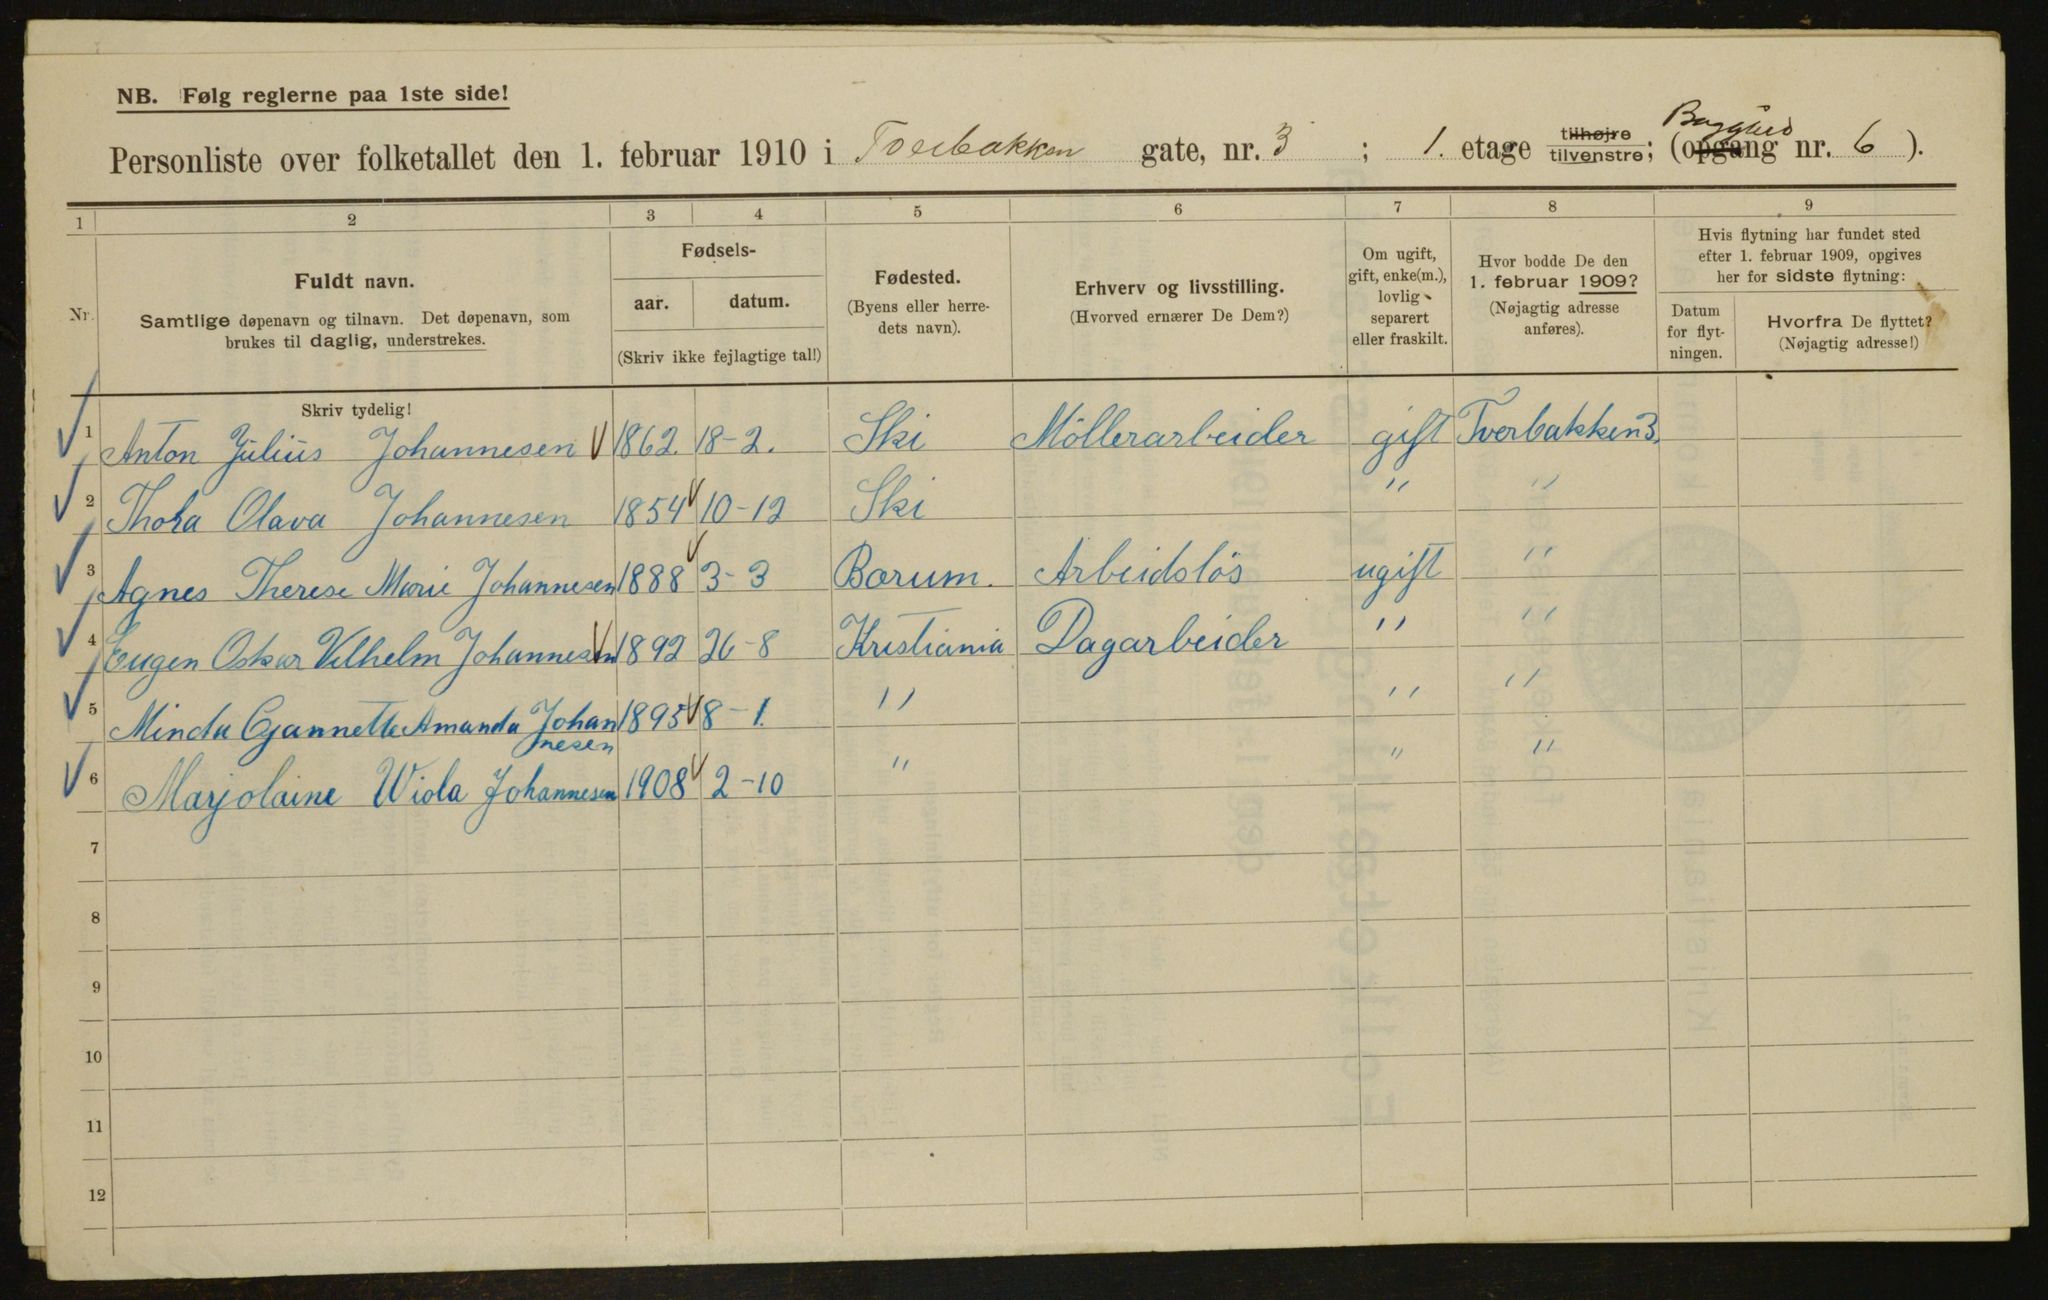 NB. Følg reglerne paa 1ste side!
Personliste over folketallet den 1. februar 1910 i Tverbakken gate, nr. 3 ; 1. etage tilhøjre tilvenstre; (opgang nr. 6 ).
1 2 3 4 5 6 7 8 9
Nr.
Fuldt navn.
Samtlige døpenavn og tilnavn. Det døpenavn, som
brukes til daglig, understrekes.
Fødsels-
aar. datum.
(Skriv ikke fejlagtige tal!)
Fødested.
(Byens eller herre-
dets navn).
Erhverv og livsstilling.
(Hvorved ernærer De Dem?)
Om ugift,
gift, enke(m.),
lovlig
separert
eller fraskilt.
Hvor bodde De den
1. februar 1909?
(Nøjagtig adresse
anføres).
Hvis flytning har fundet sted
efter 1. februar 1909, opgives
her for sidste flytning:
Datum
for flyt-
ningen.
Hvorfra De flyttet?
(Nøjagtig adresse!)
Skriv tydelig!
1 Anton Julius Johannesen 1862. 18-2. Ski Möllerarbeider gift Tverbakken 3.
2 Thora Olava Johannesen 1854 10-12 Ski " "
3 Agnes Therese Marie Johannesen 1888 3-3 Bærum. Arbeidslös ugift "
4 Eugen Oskar Vilhelm Johannesen 1892 26-8 Kristiania Dagarbeider " "
5 Minda Gjannette Amanda Johan 1895 8-1. " " "
nesen
6 Marjolaine Wiola Johannesen 1908 2-10 " " "
7
8
9
10
11
12